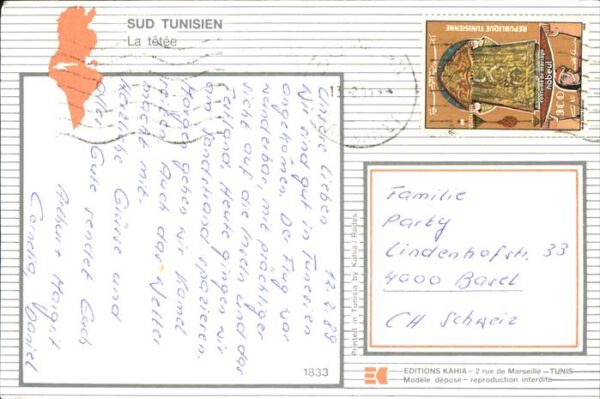 SUD TUNISIEN
La têtée
12.2.89
Unsere Lieben
Wir sind gut in Tunesien
angekommen. Der Flug war
wunderbar, mit prächtiger
Sicht auf die Inseln und das
Festland. Heute gingen wir
am Sandstrand spazieren.
Morgen gehen wir Kamel
reiten. Auch das Wetter
macht mit.
Herzliche Grüsse und
alles Gute sendet Euch
Margrit
Cornelia, Daniel
1833
Printed in Tunisia by Kahia / Rades
REPUBLIQUE TUNISIENNE
costume de mariage
nabeul
Familie
Party
Lindenhofstr. 33
4000 Basel
CH Schweiz
EDITIONS KAHIA – 2 rue de Marseille – TUNIS
Modèle déposé – reproduction interdite